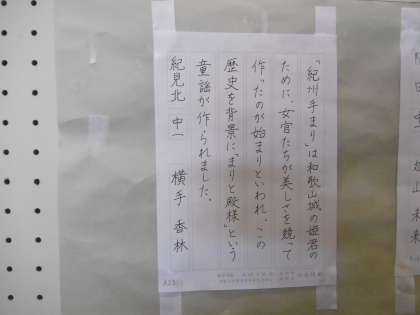 「紀州手まり」は和歌山城の姫君の
ために、女官たちが美しさを競って
作ったのが始まりといわれ、この
歴史を背景に、"まりと殿様"という
童謡が作られました。
紀見北 中一 横手 香林